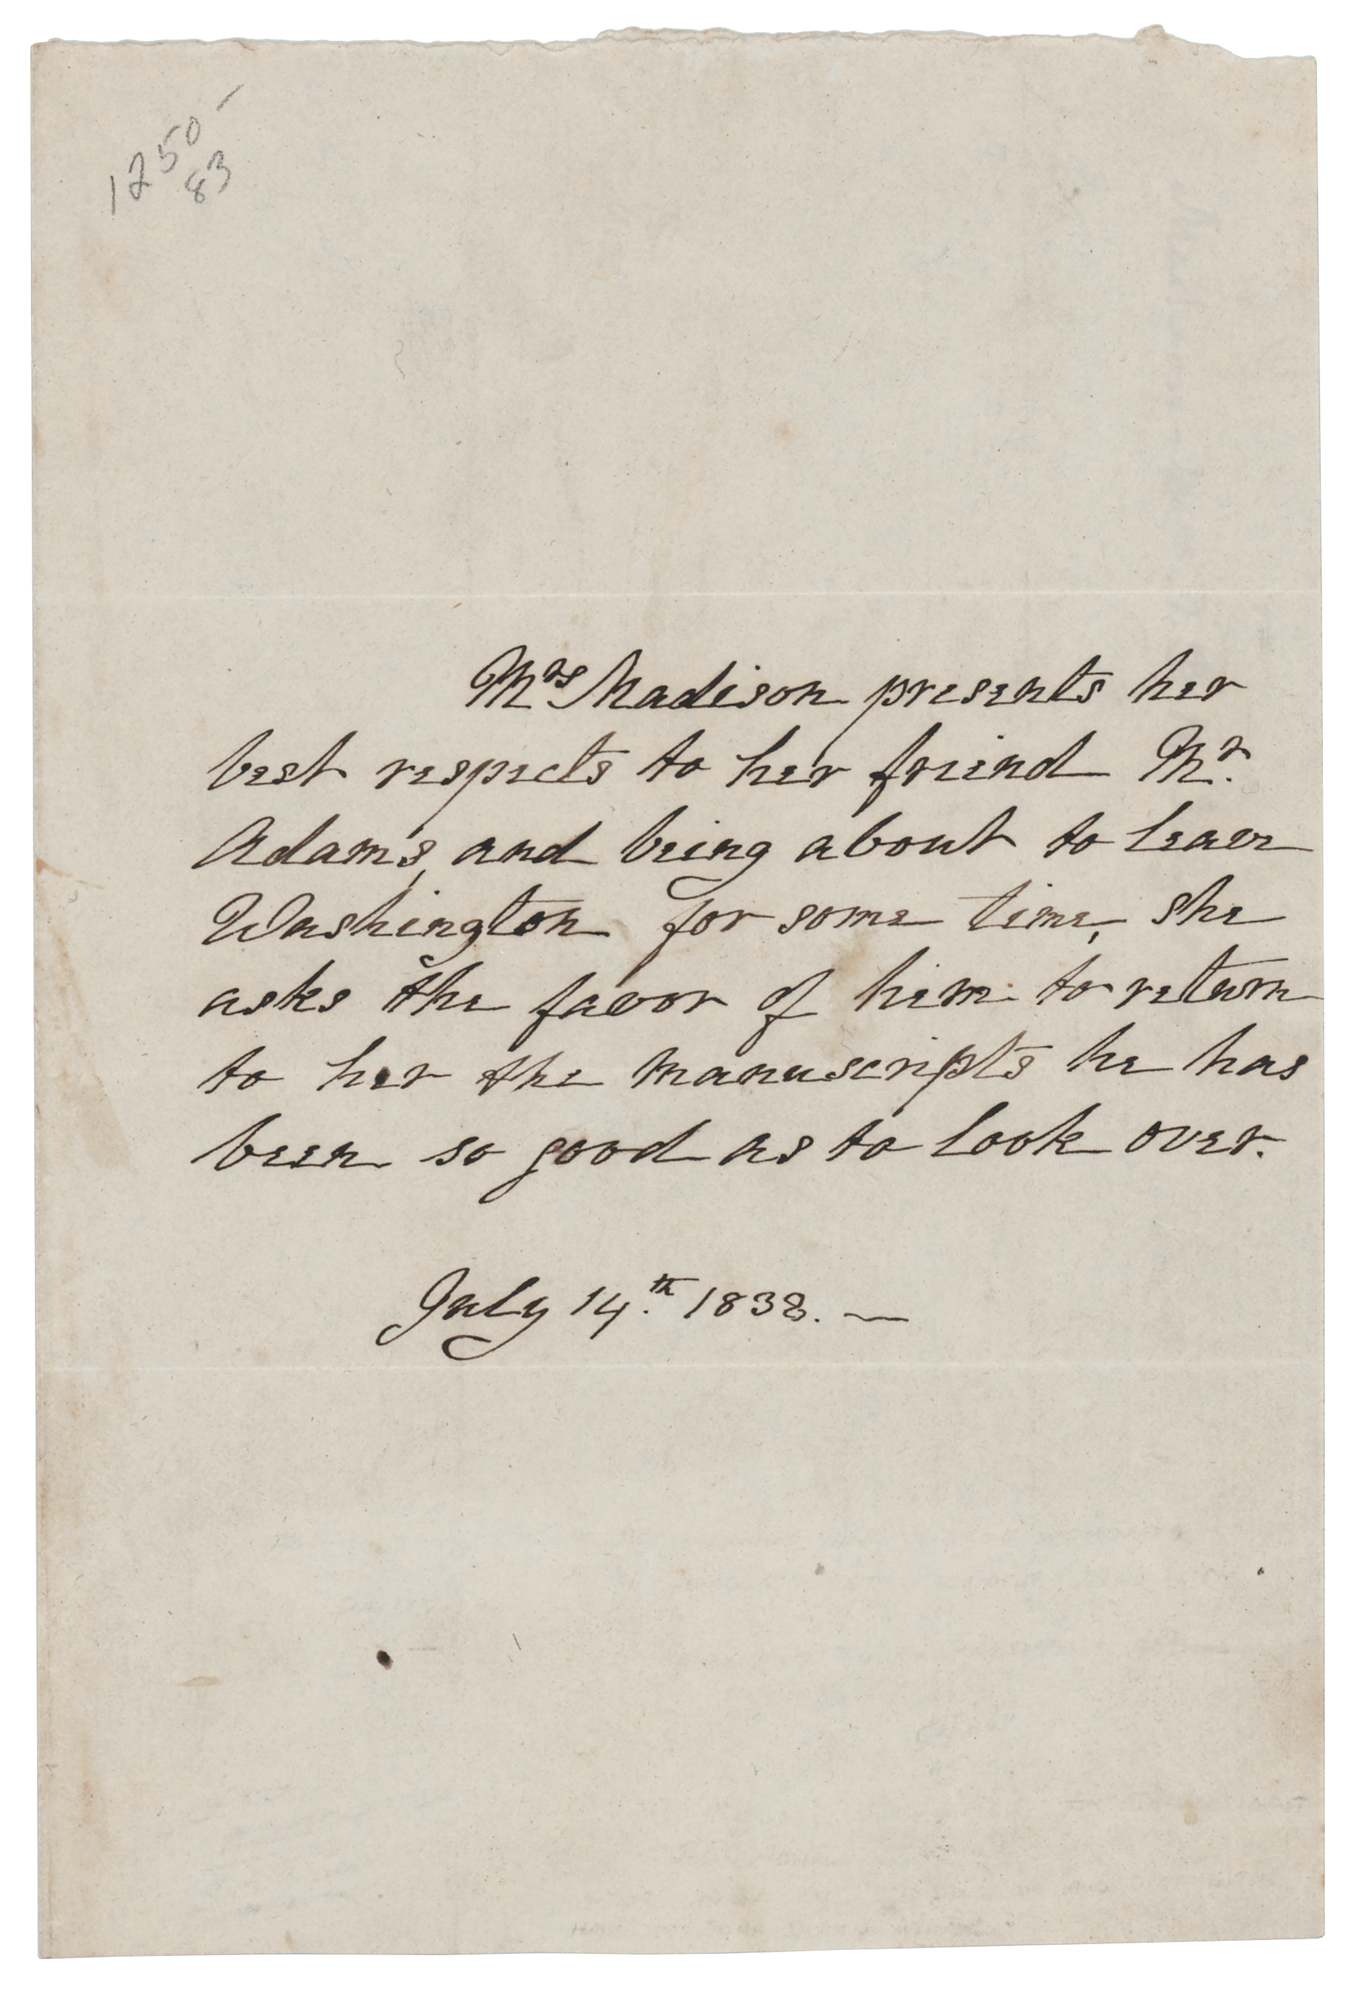 1250-
83
Mrs Madison presents her
best respects to her friend Mr.
Adams, and being about to leave
Washington for some time, she
asks the favor of him to return
to her the manuscripts he has
been so good as to look over.
July 14.th 1838. —